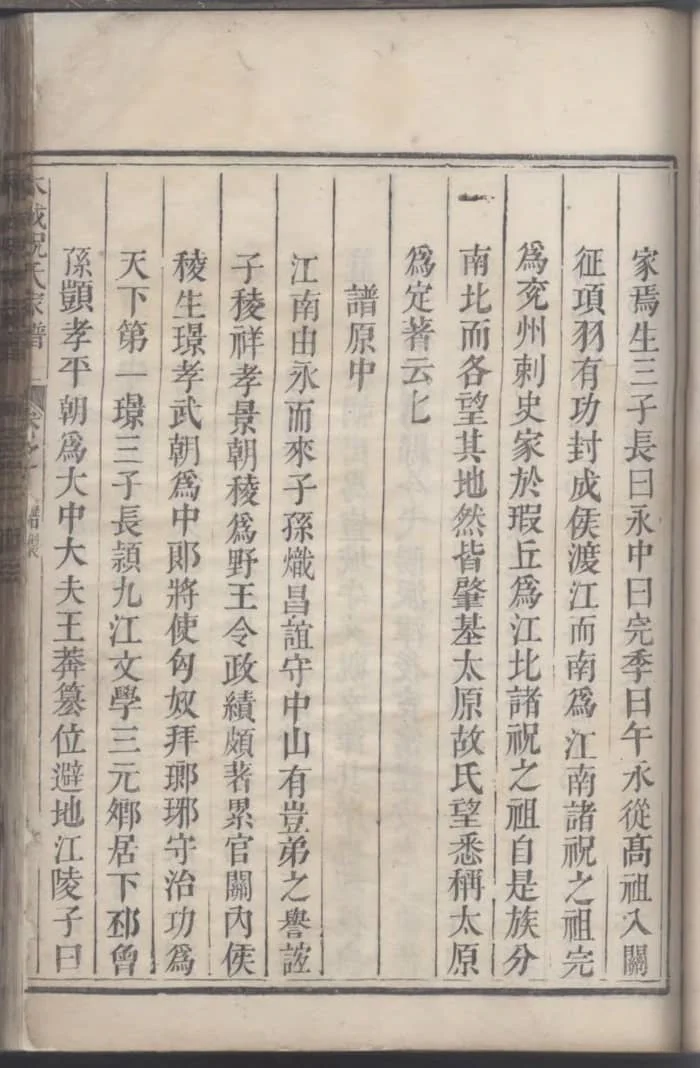 家焉生三子長曰永中曰完季曰午永從髙祖入關
征項羽有功封成侯渡江而南爲江南諸祝之祖完
爲兖州剌史家於瑕丘爲江北諸祝之祖自是族分
南北而各望其地然皆肇基太原故氏望悉稱太原
爲定著云
譜原中
江南由永而來子孫熾昌誼守中山有豈弟之譽誼
子稜祥孝景朝稜爲野王令政績頗著累官關內侯
稜生璟孝武朝爲中郎將使匈奴拜瑯琊守治功爲
天下第一璟三子長潁九江文學三元鄉居下邳曾
孫顗孝平朝爲大中大夫王莽簒位避地江陵子曰
祝氏家譜